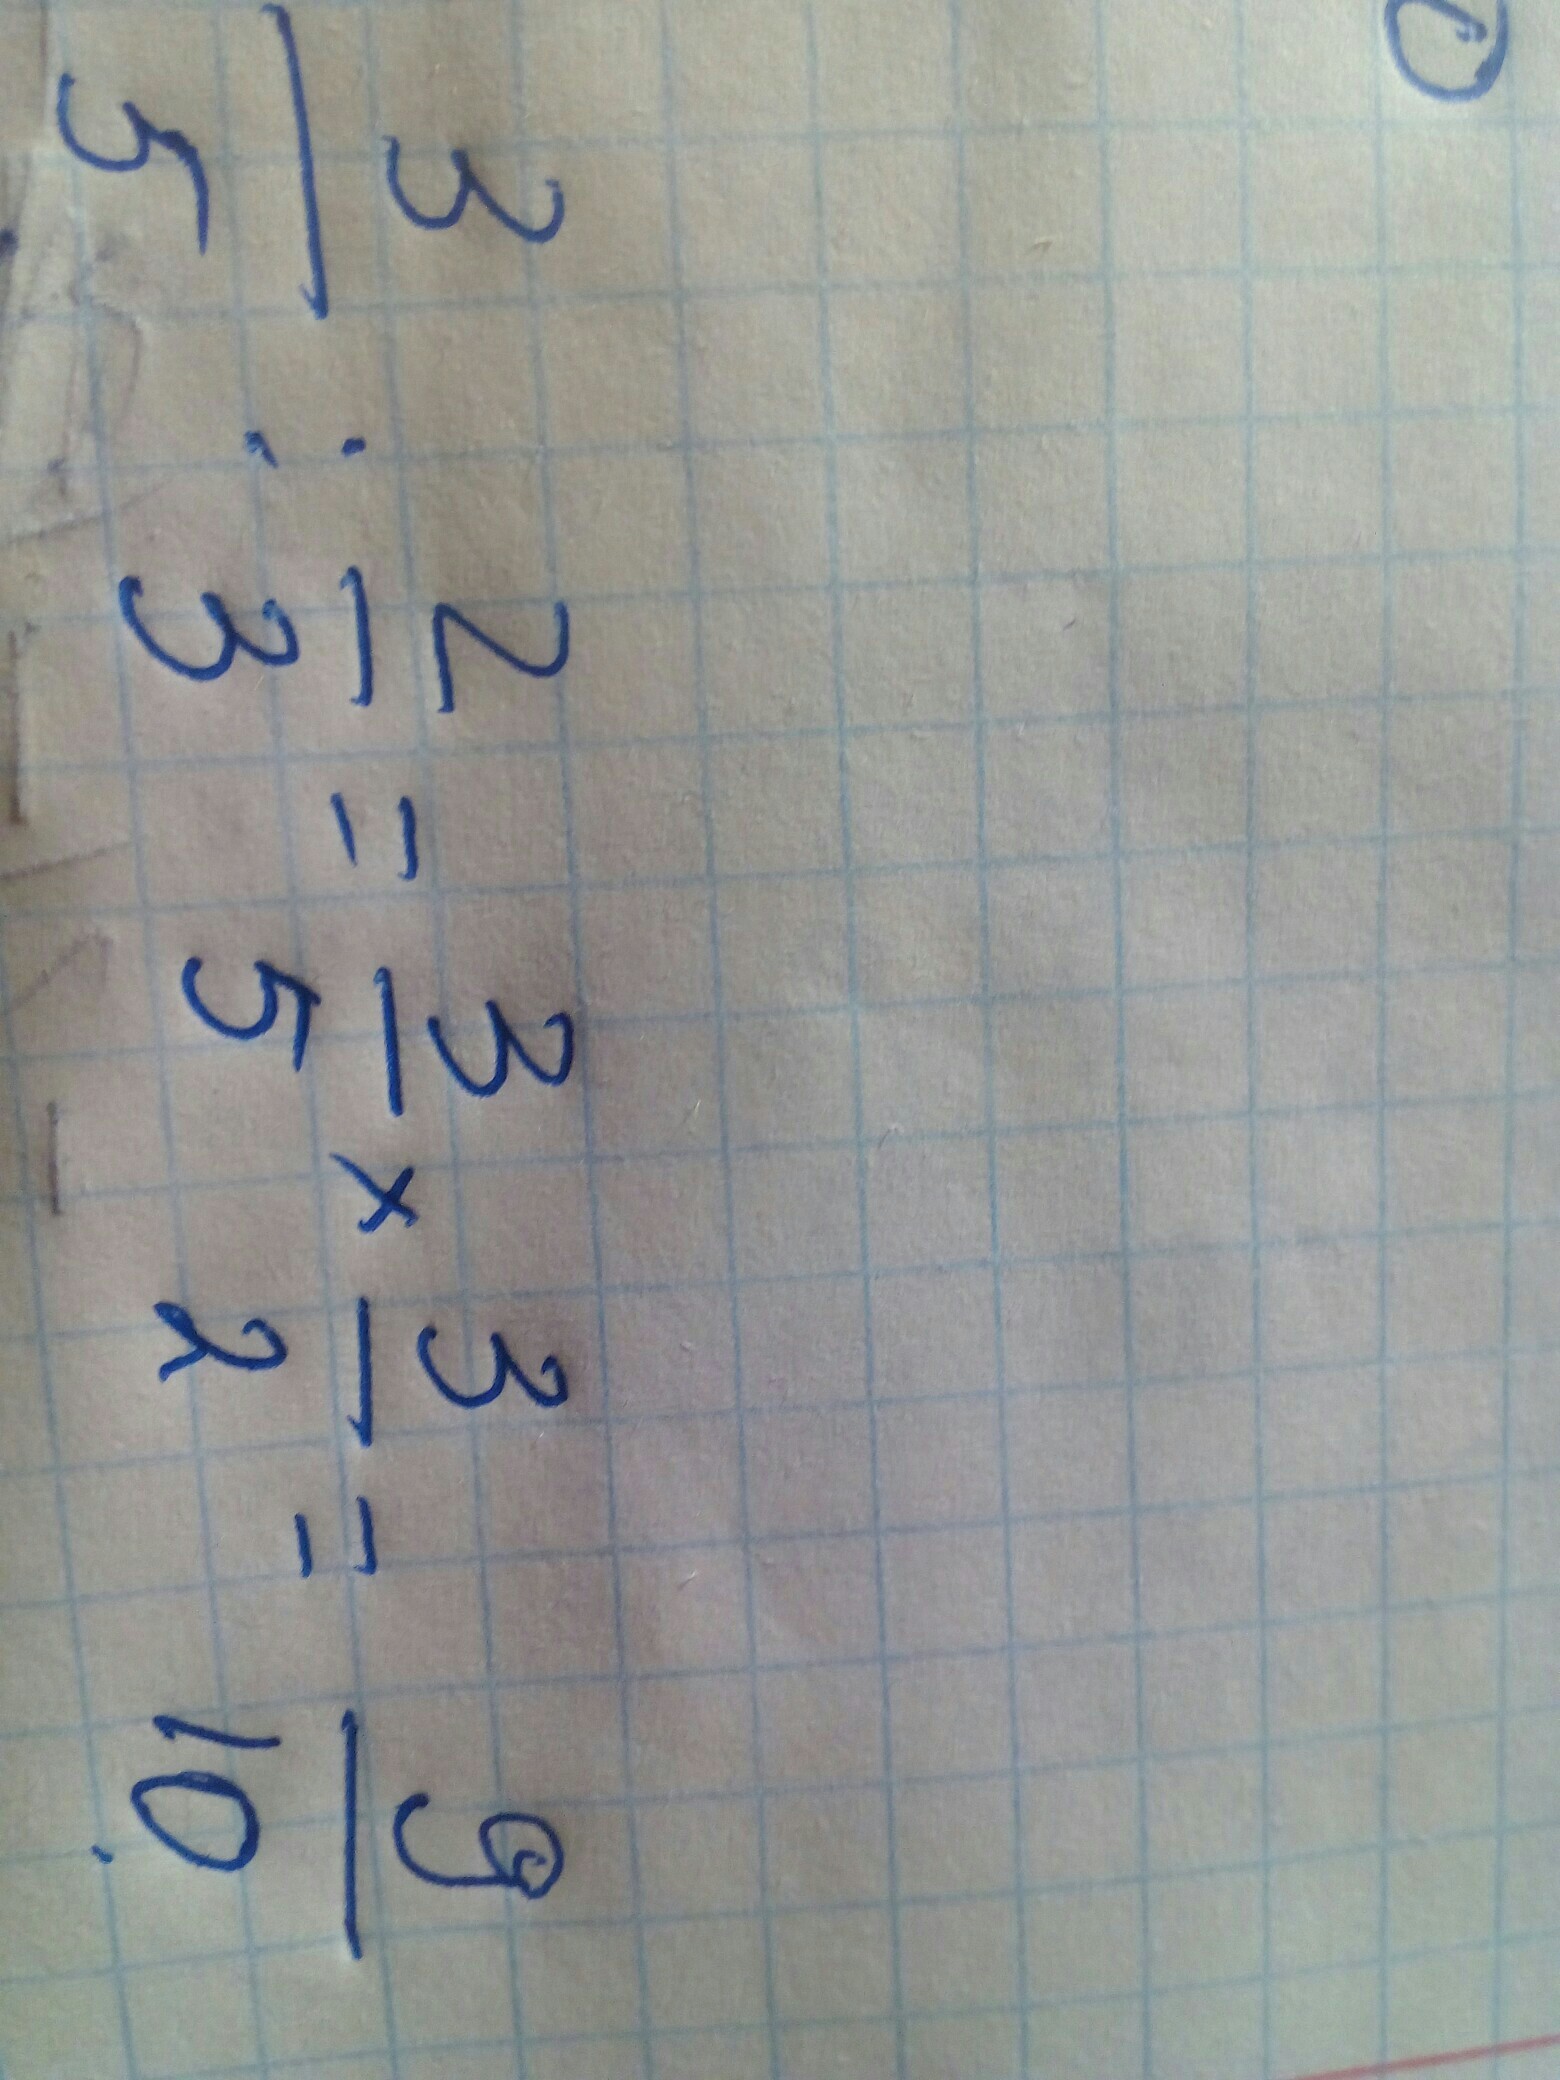 3/5 : 2/3 = 3/5 × 3/2 = 9/10